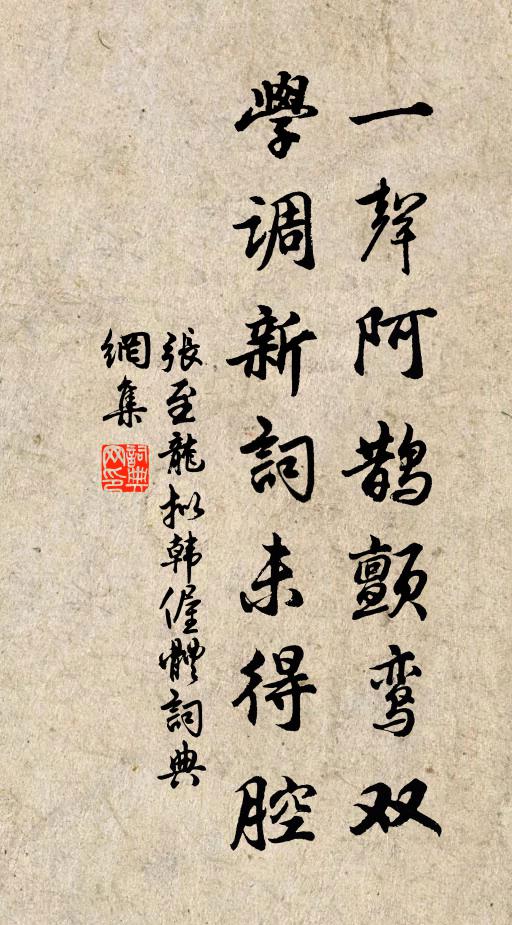 一聲阿鵲顫鸾双
學调新詞未得腔
張至龍拟韩偓體詞典
網集
詞典
网印